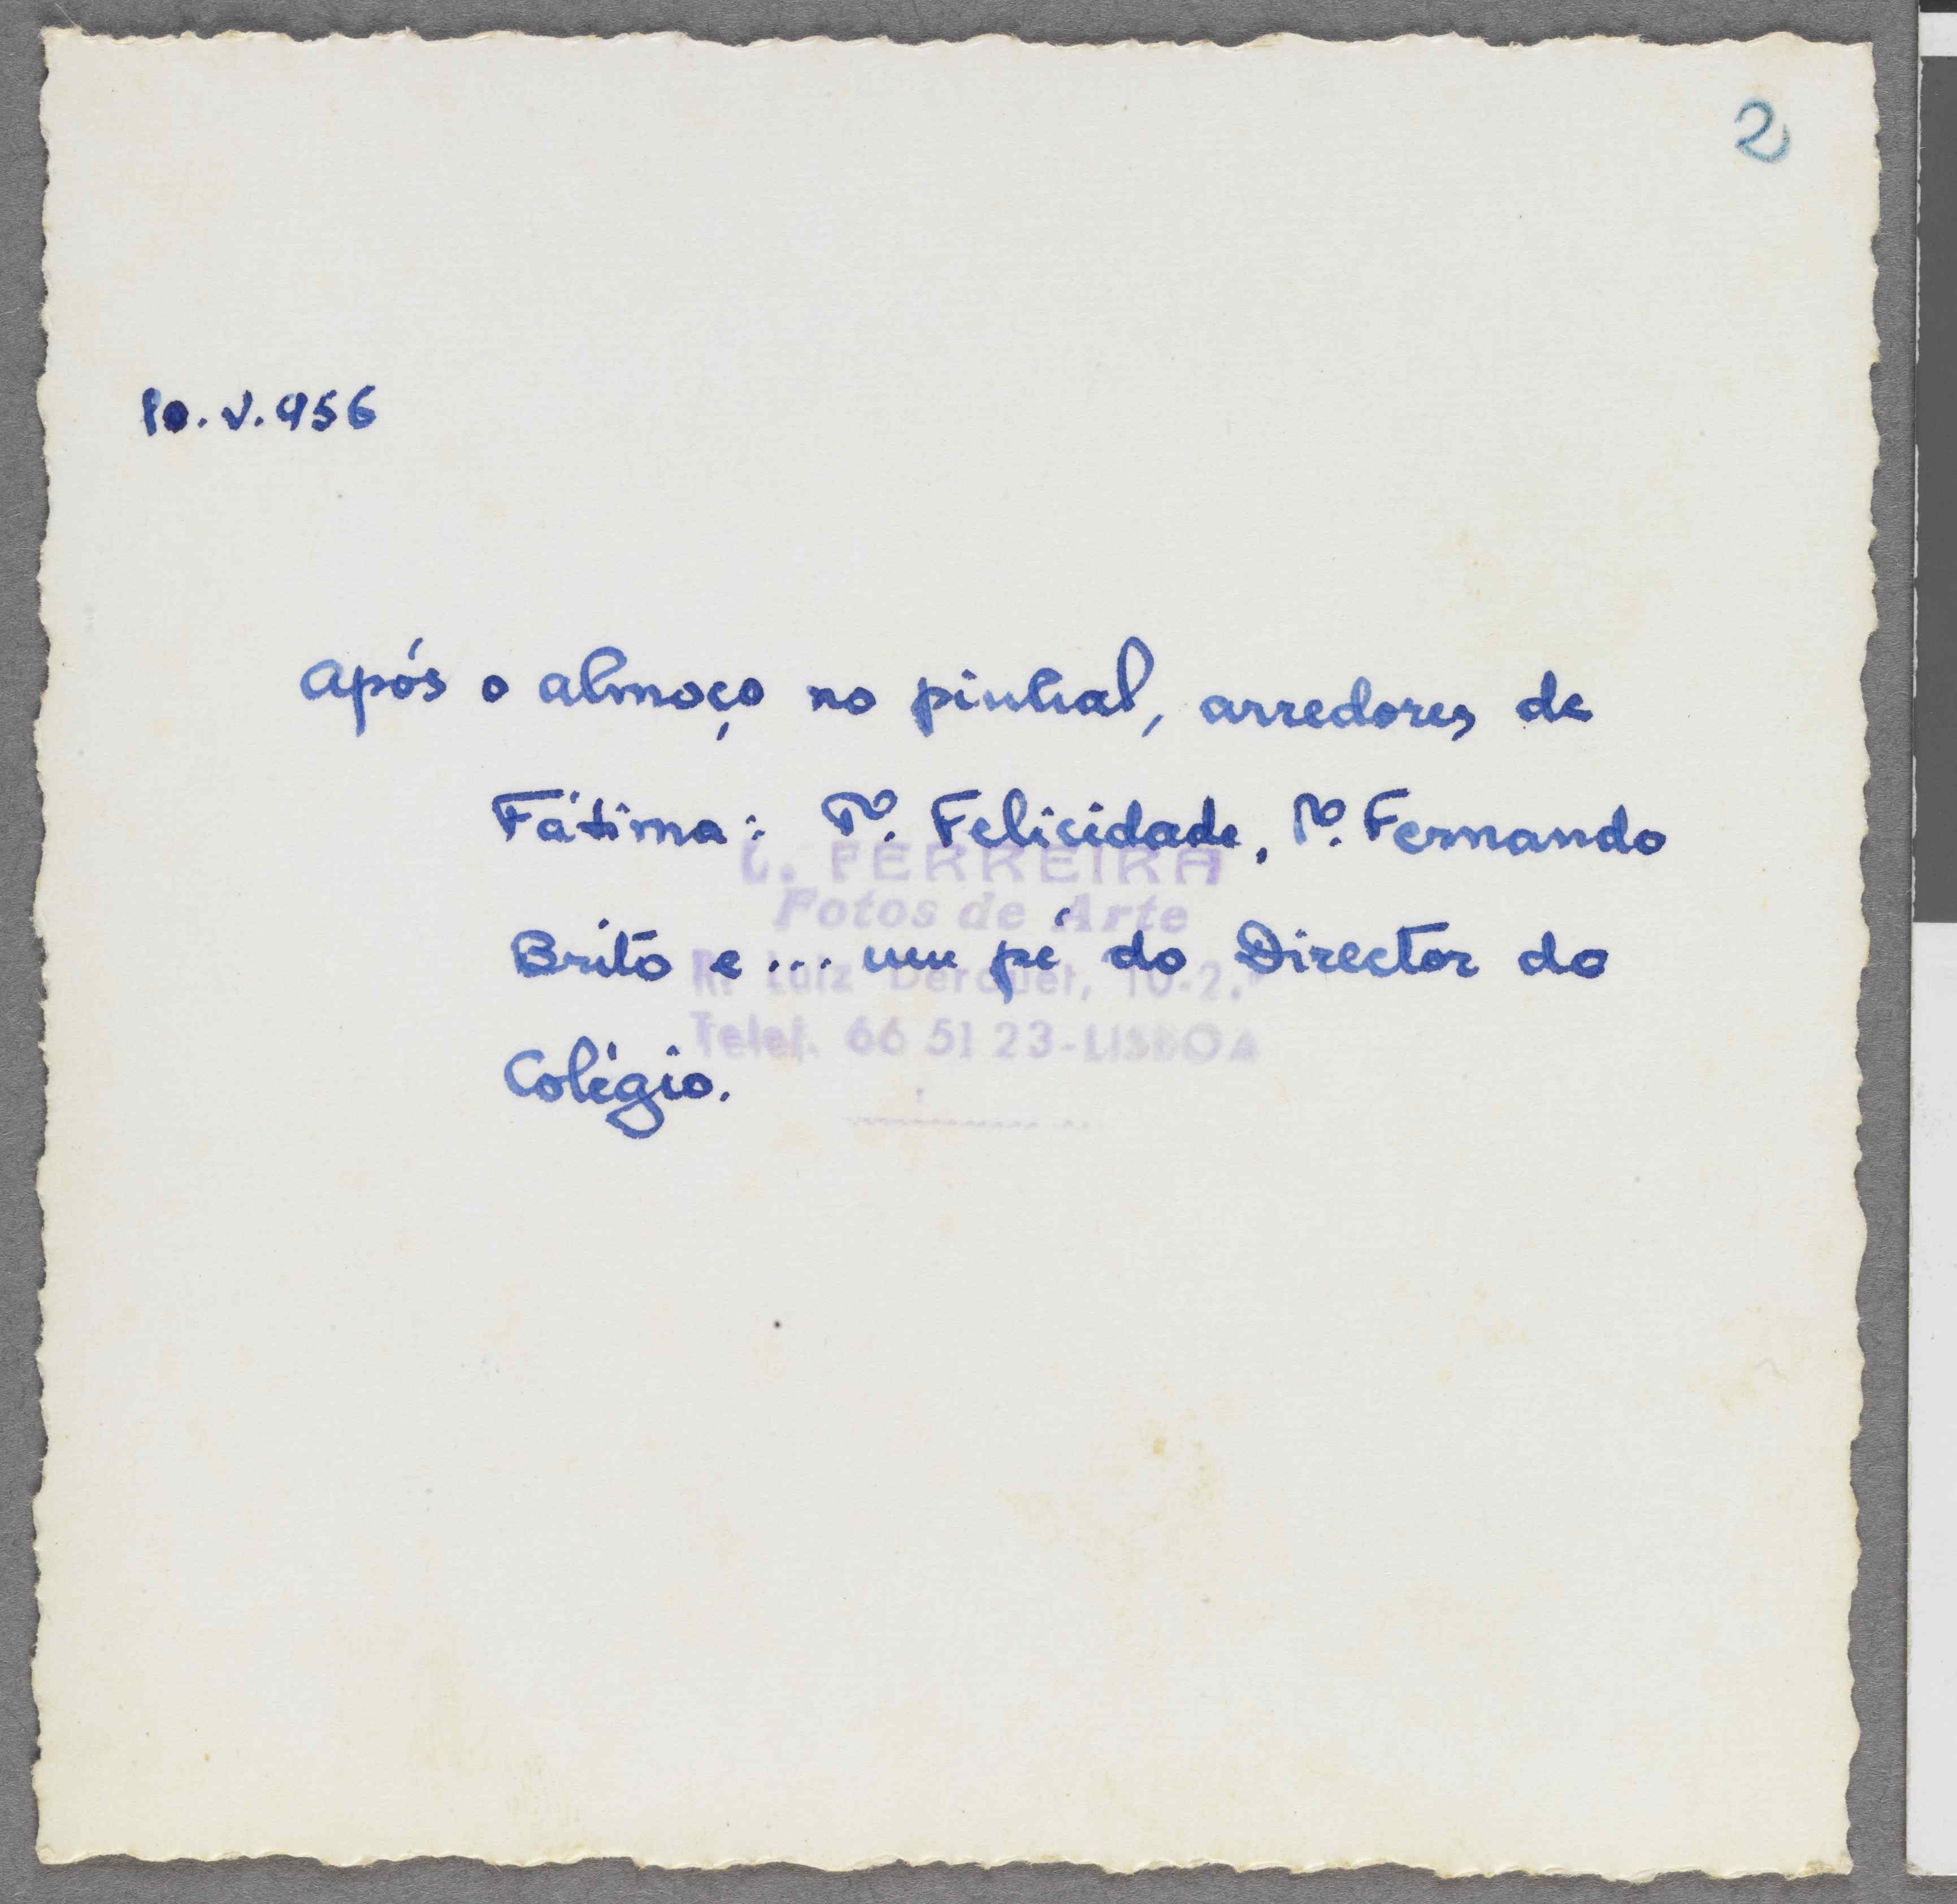 2
10.V.956
Após o almoço no pinhal, arredores de
Fátima: Pº. Felicidade, Pº. Fernando
FERREIRA
Fotos de Arte
Brito e ... um pé do Director do
R. Luiz Derouet, 10-2.º
Telef. 66 51 23 - LISBOA
Colégio.